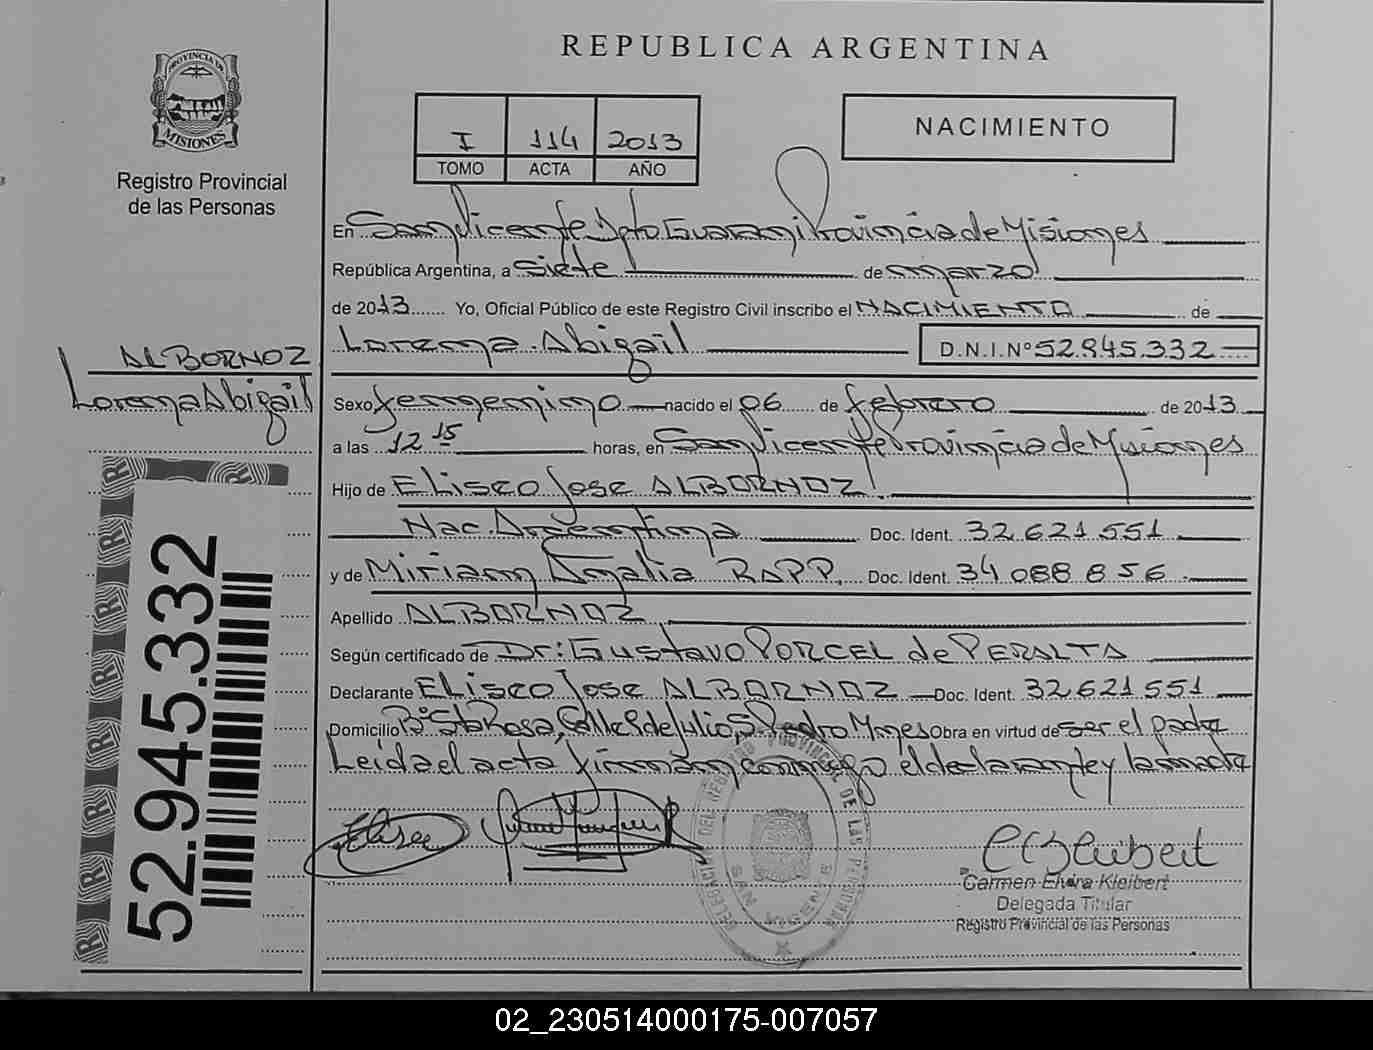 REPUBLICA ARGENTINA
PROVINCIA DE
MISIONES
Registro Provincial
de las Personas
I 114 2013
TOMO ACTA AÑO
NACIMIENTO
En San Vicente Dpto Guarani Provincia de Misiones
República Argentina, a siete de marzo
de 2013 Yo, Oficial Público de este Registro Civil inscribo el NACIMIENTO de
Lorena Abigail D.N.I.Nº 52.945.332
ALBORNOZ
Lorena Abigail
Sexo femenino nacido el 06 de febrero de 2013
a las 12 15 horas, en San Vicente Provincia de Misiones
Hijo de Eliseo Jose ALBORNOZ
Nac. Argentina Doc. Ident. 32.621.551
y de Miriam Amalia RAPP, Doc. Ident. 34 088 856
Apellido ALBORNOZ
Según certificado de Dr: Gustavo PORCEL de PERALTA
Declarante Eliseo Jose ALBORNOZ Doc. Ident. 32.621 551
Domicilio Bº Sta Rosa, Calle 9 de Julio, S. Pedro Mnes Obra en virtud de ser el padre
Leida el acta firman conmigo el declarante y la madre
52.945.332
Eliseo
DELEGACION DEL REGISTRO PROVINCIAL DE LAS PERSONAS
SAN VICENTE
Carmen Elvira Kleibert
Delegada Titular
Registro Provincial de las Personas
02_230514000175-007057